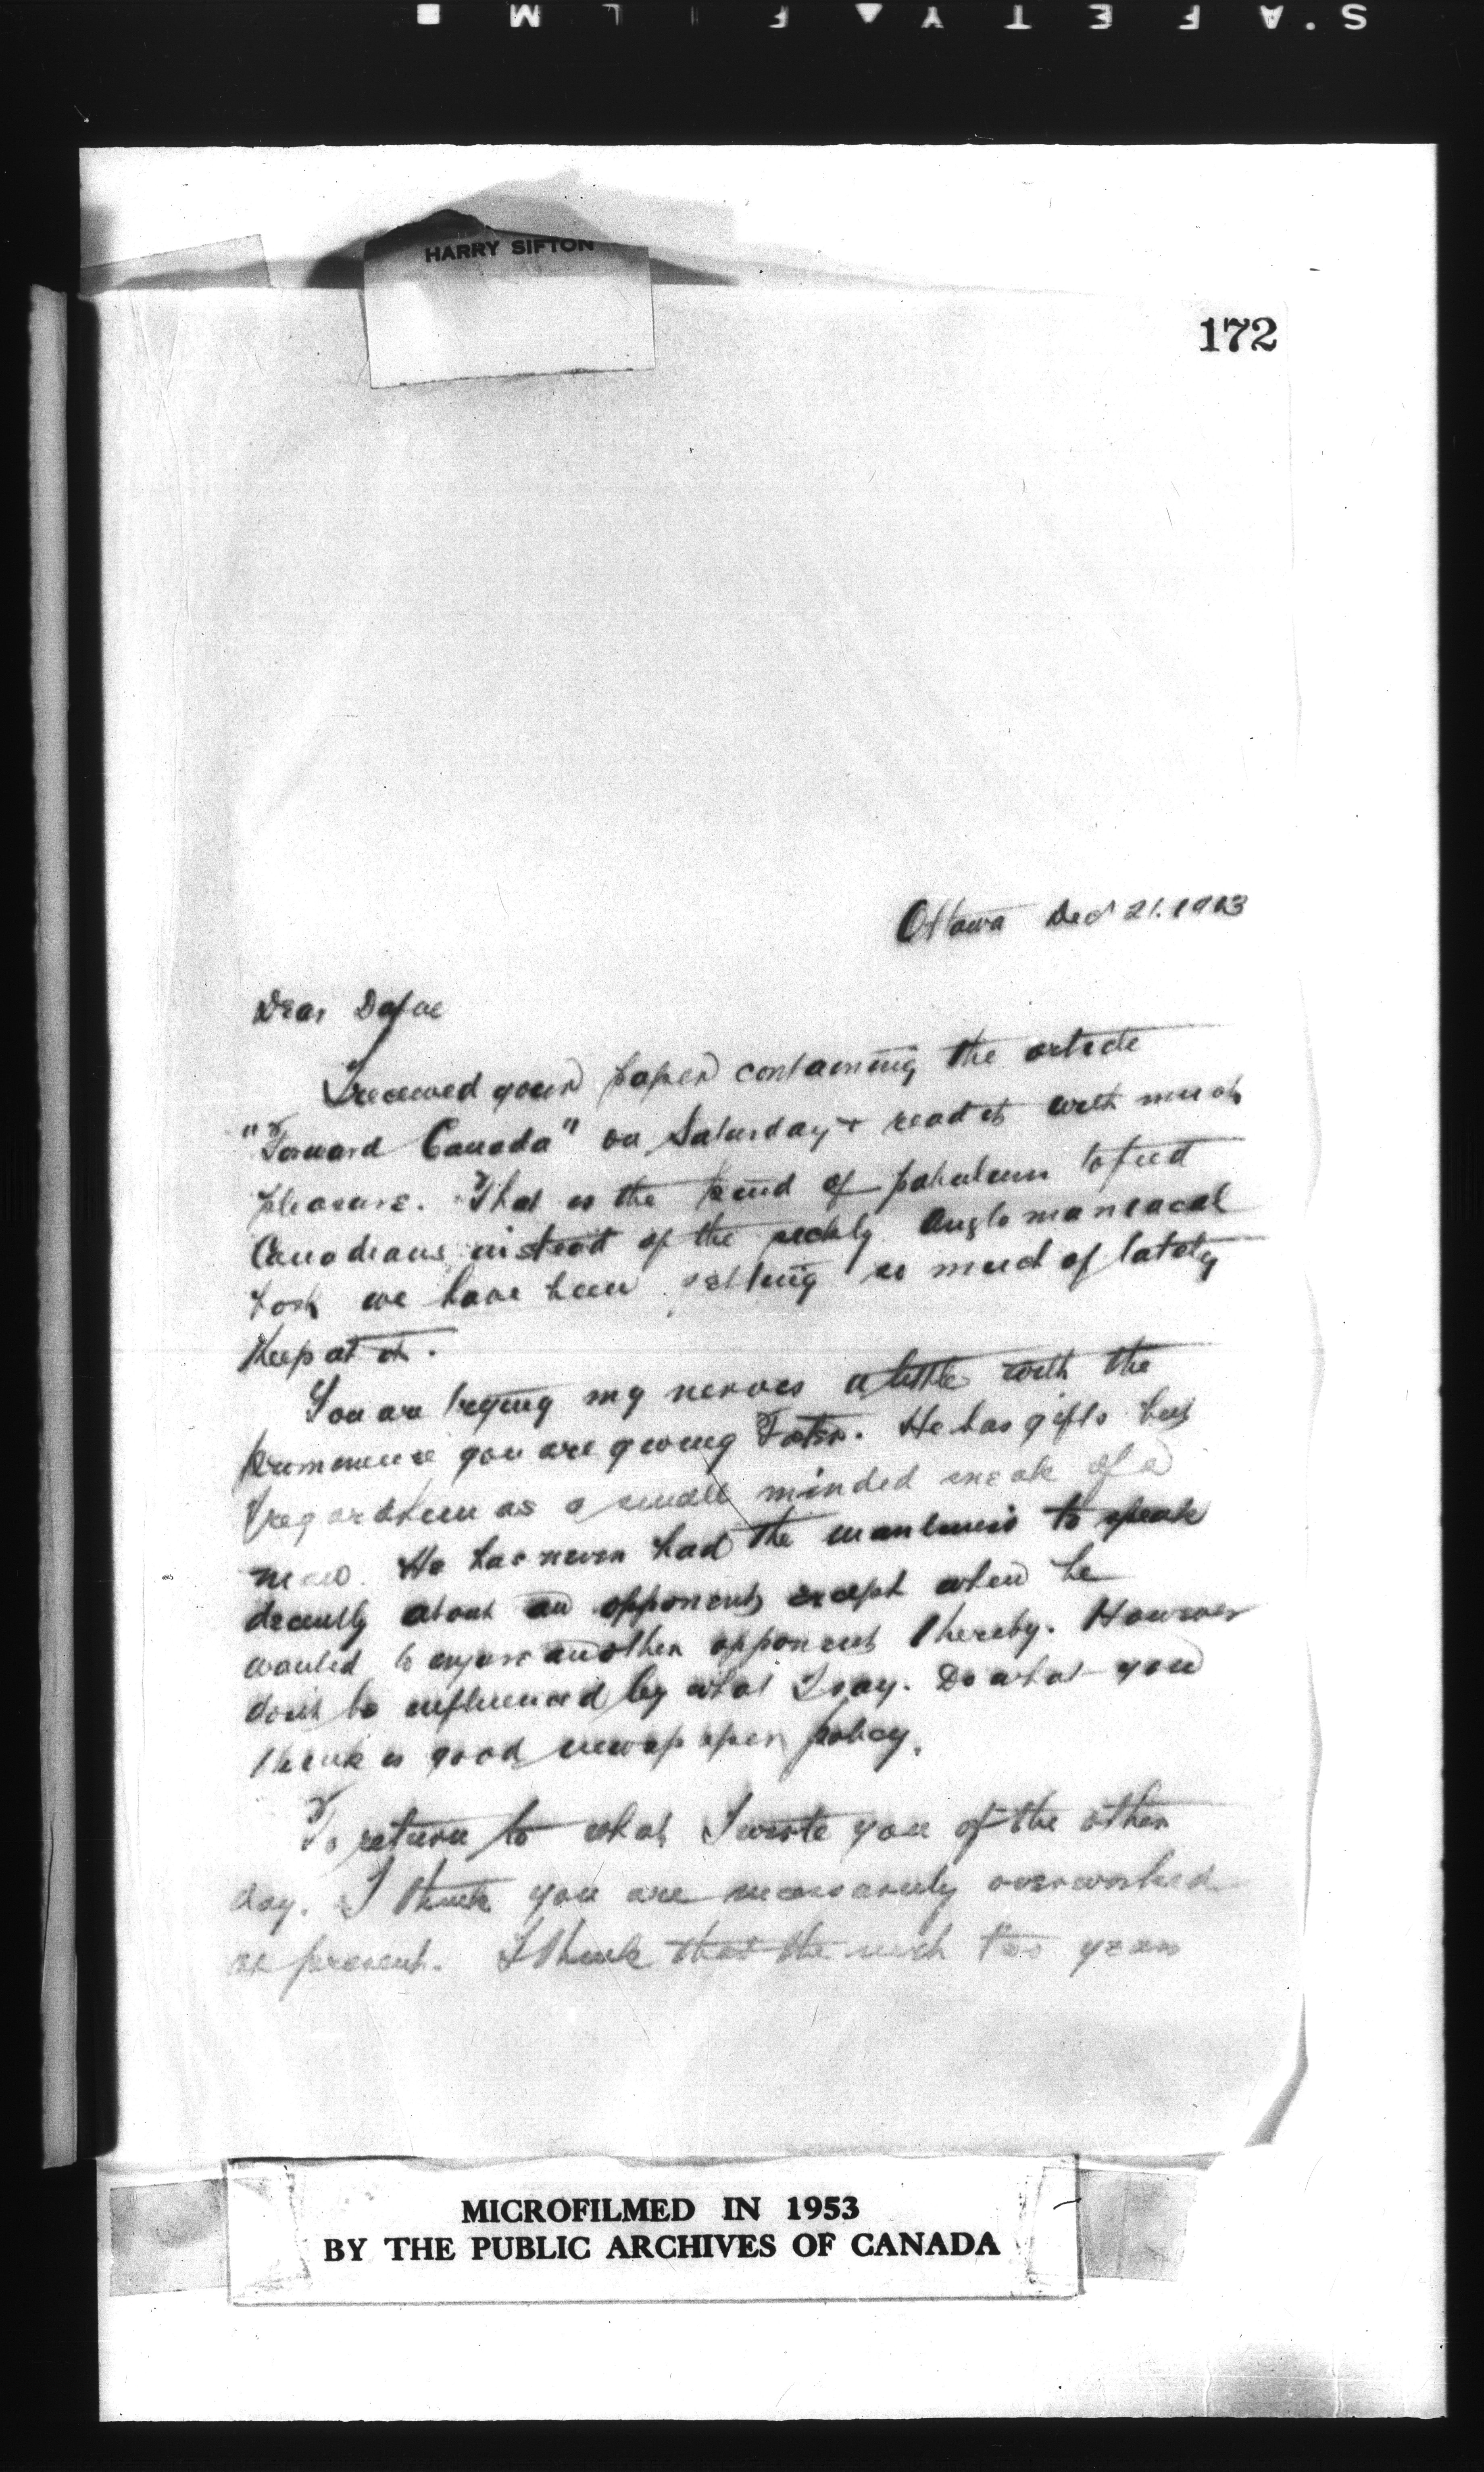 S'AFETY FILM
HARRY SIFTON
172
Ottawa Dec 21. 1903
Dear Dafoe
I received your paper containing the article
"Forward Canada" on Saturday & read it with much
pleasure. That is the kind of pabulum to feed
Canadians instead of the sickly Anglo maniacal
tosh we have been getting so much of lately
Keep at it.
You are trying my nerves a little with the
prominence you are giving Foster. He has gifts but
I regard him as a small minded sneak of a
man. He has never had the manliness to speak
decently about an opponent except when he
wanted to injure another opponent thereby. However
don't be influenced by what I say. Do what you
think is good newspaper policy.
To return to what I wrote you of the other
day. I think you are necessarily overworked
at present. I think that the next two years
MICROFILMED IN 1953
BY THE PUBLIC ARCHIVES OF CANADA